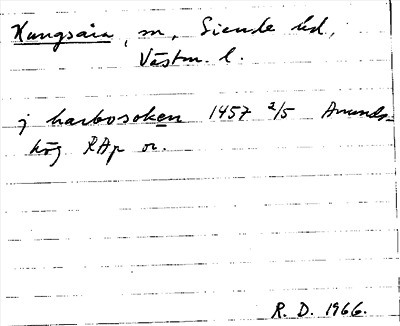 Kungsåra, m, Siende hd,
Västm. l.
j harbosoken 1457 2/5 Amunds-
hög RAp or.
R. D. 1966.